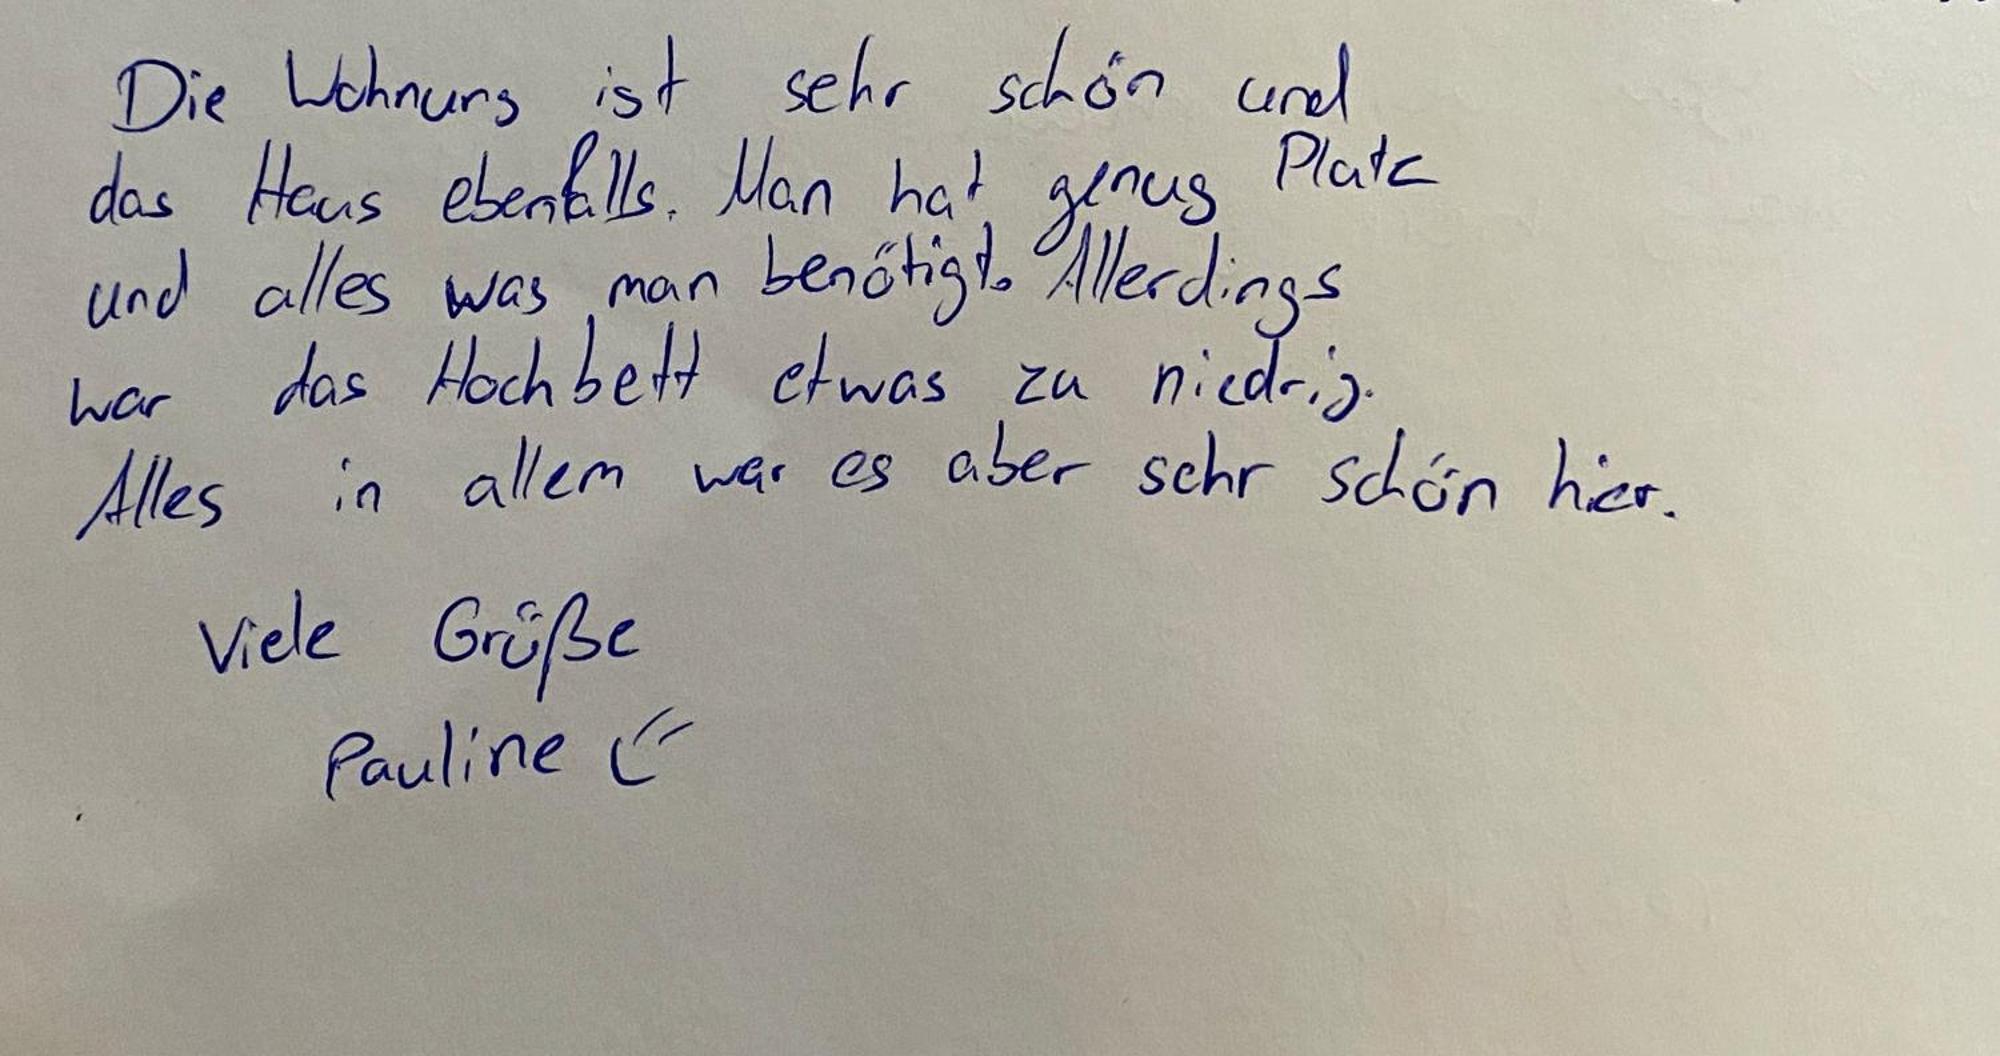 Die Wohnung ist sehr schön und
das Haus ebenfalls. Man hat genug Platz
und alles was man benötigt. Allerdings
war das Hochbett etwas zu niedrig.
Alles in allem war es aber sehr schön hier.
Viele Grüße
Pauline